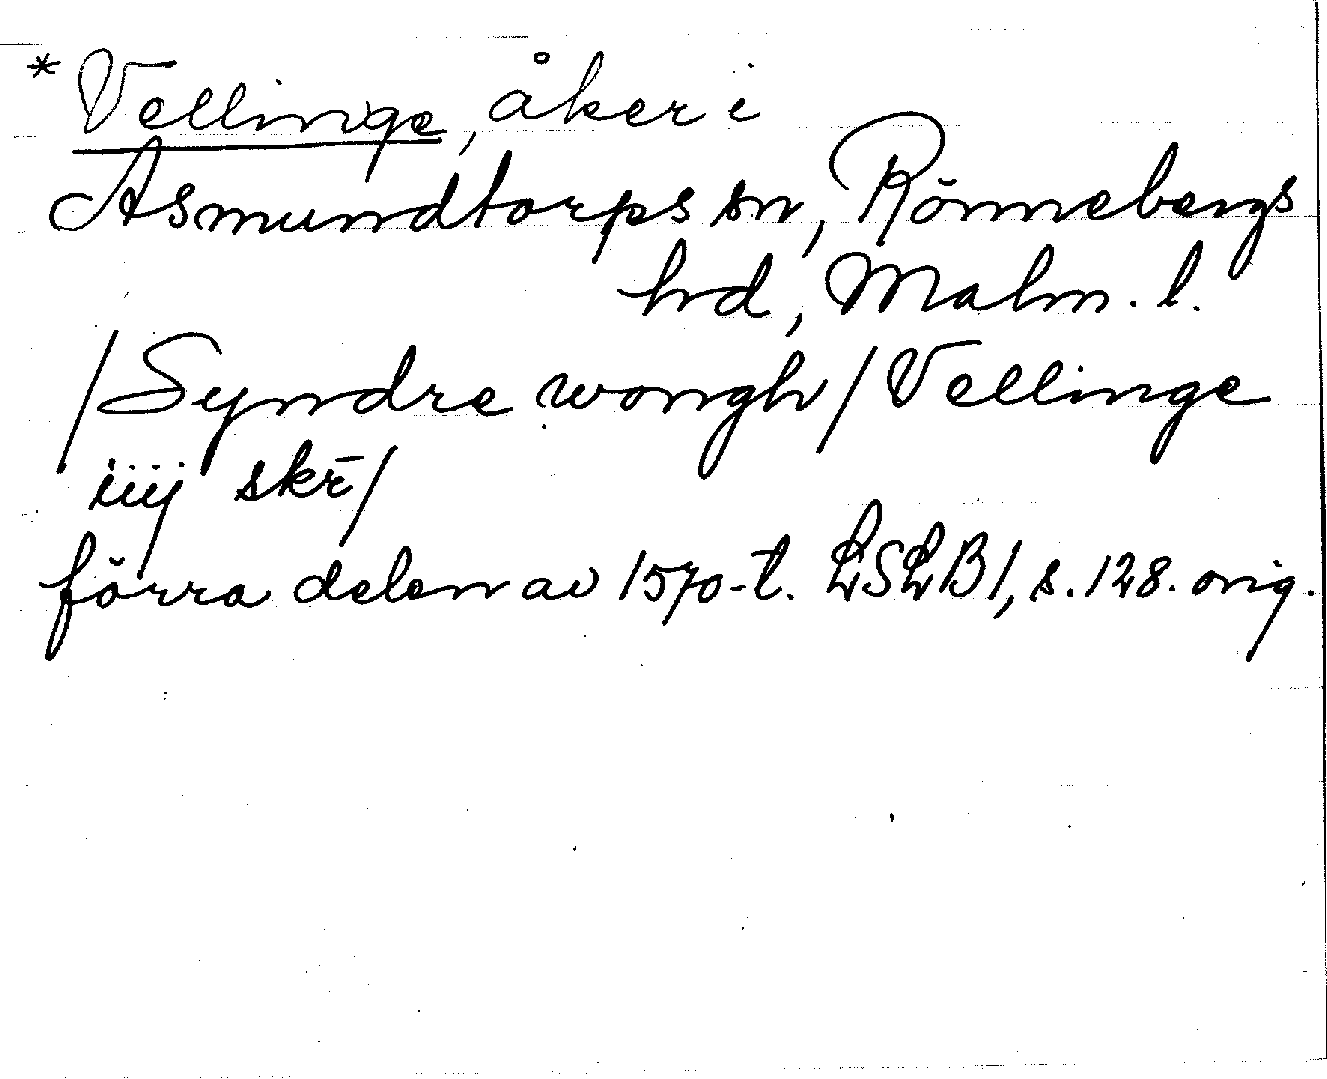 * Vellinge, åker i
Asmundtorps sn, Rönnebergs
hd, Malm. l.
/Syndre wongh/ Vellinge
iiij skr̄/
förra delen av 1570-t. LSLB 1, s. 128. orig.